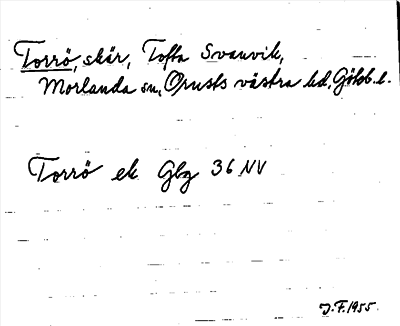 Torrö, skär, Tofta Svanvik,
Morlanda sn, Orusts västra hd, Götebb. l.
Torrö ek Gbg 36 NV
J.F. 1955.